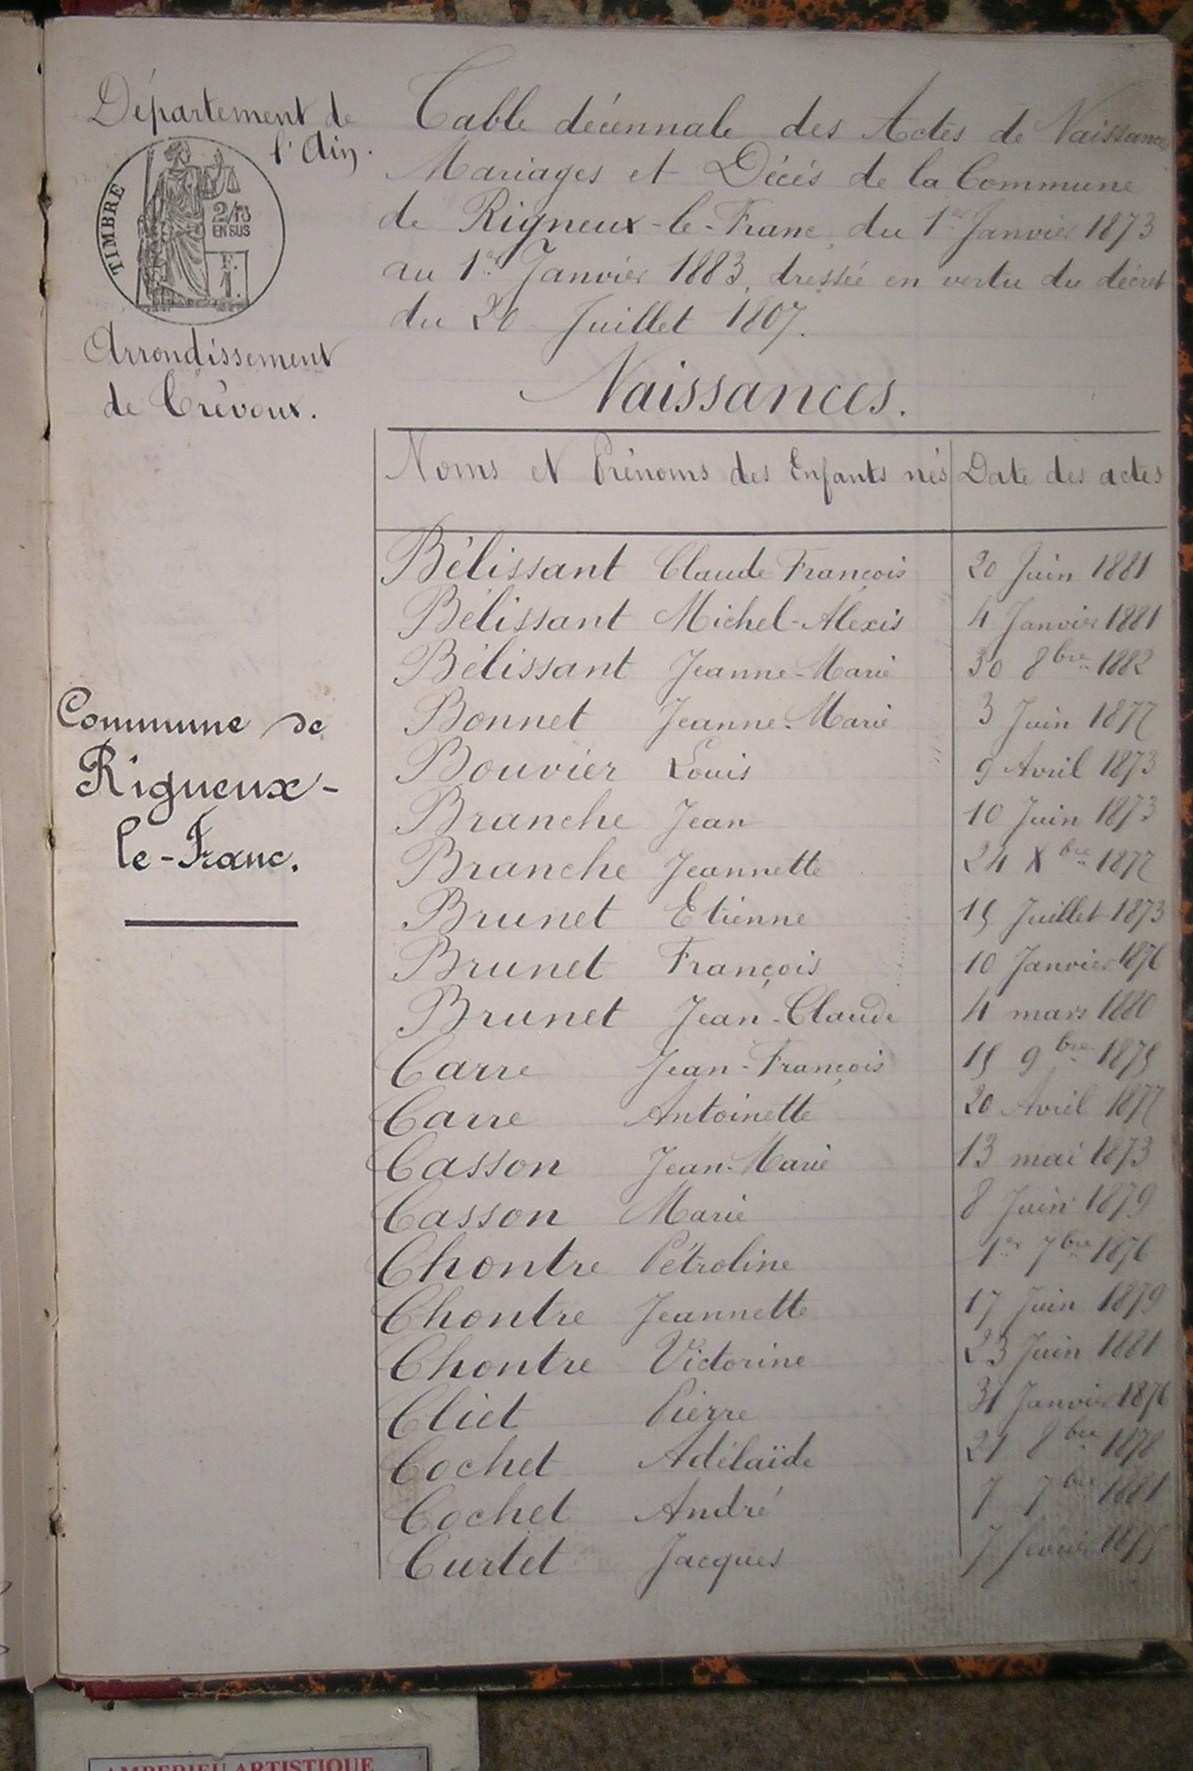 Département de
l'Ain.
TIMBRE
2/10
EN SUS
F.
1.
Arrondissement
de Trévoux.
Commune de
Rigneux-
le-Franc.
Table décennale des Actes de Naissance
Mariages et Décès de la Commune
de Rigneux-le-Franc, du 1er Janvier 1873
au 1er Janvier 1883, dressée en vertu du décret
du 20 Juillet 1807.
Naissances.
Noms et Prénoms des Enfants nés Date des actes
Bélissant Claude François 20 Juin 1881
Bélissant Michel-Alexis 4 Janvier 1881
Bélissant Jeanne-Marie 30 8bre 1882
Bonnet Jeanne-Marie 3 Juin 1877
Bouvier Louis 9 Avril 1873
Branche Jean 10 Juin 1873
Branche Jeannette 24 Xbre 1877
Brunet Etienne 15 Juillet 1873
Brunet François 10 Janvier 1876
Brunet Jean-Claude 4 mars 1880
Carre Jean-François 15 9bre 1875
Carre Antoinette 20 Avril 1877
Casson Jean-Marie 13 mai 1873
Casson Marie 8 Juin 1879
Chontre Pétroline 1er 7bre 1876
Chontre Jeannette 17 Juin 1879
Chontre Victorine 23 Juin 1881
Cliet Pierre 31 Janvier 1876
Cochet Adélaïde 21 8bre 1878
Cochet André 7 7bre 1881
Curtet Jacques 7 février 1875
AMBERIEU ARTISTIQUE